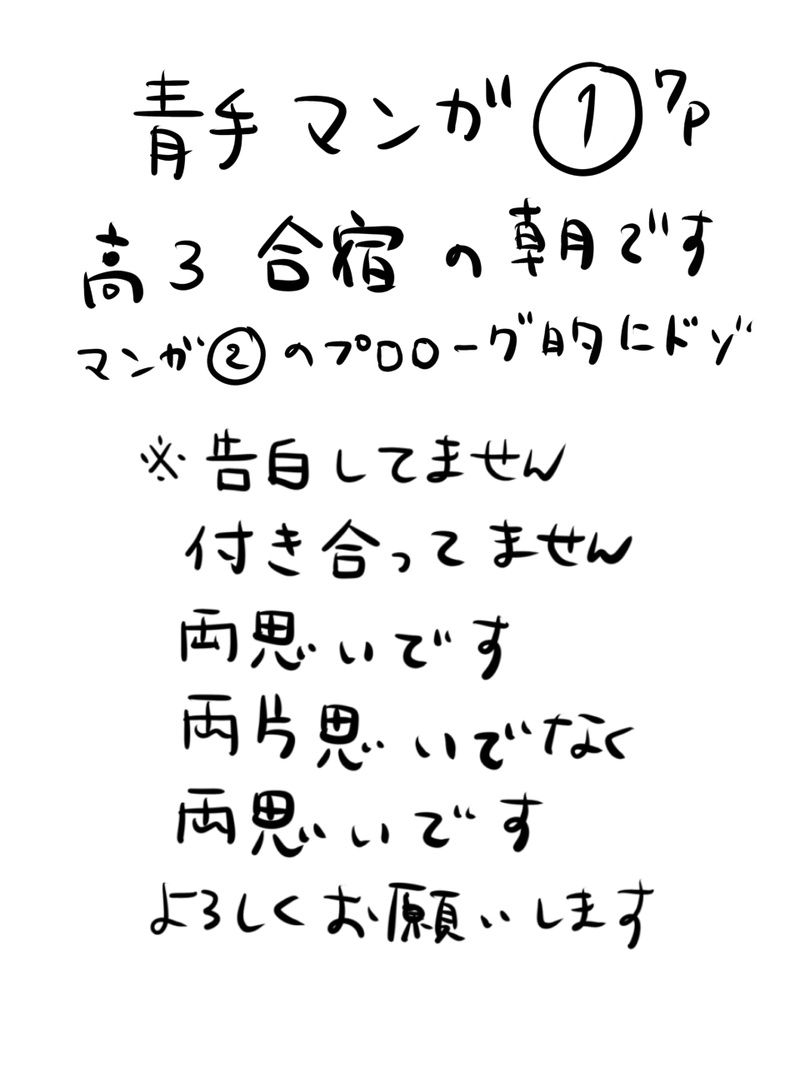 青手マンガ①7P
高3 合宿の朝です
マンガ②のプロローグ的にドゾ
※告白してません
付き合ってません
両思いです
両片思いでなく
両思いです
よろしくお願いします